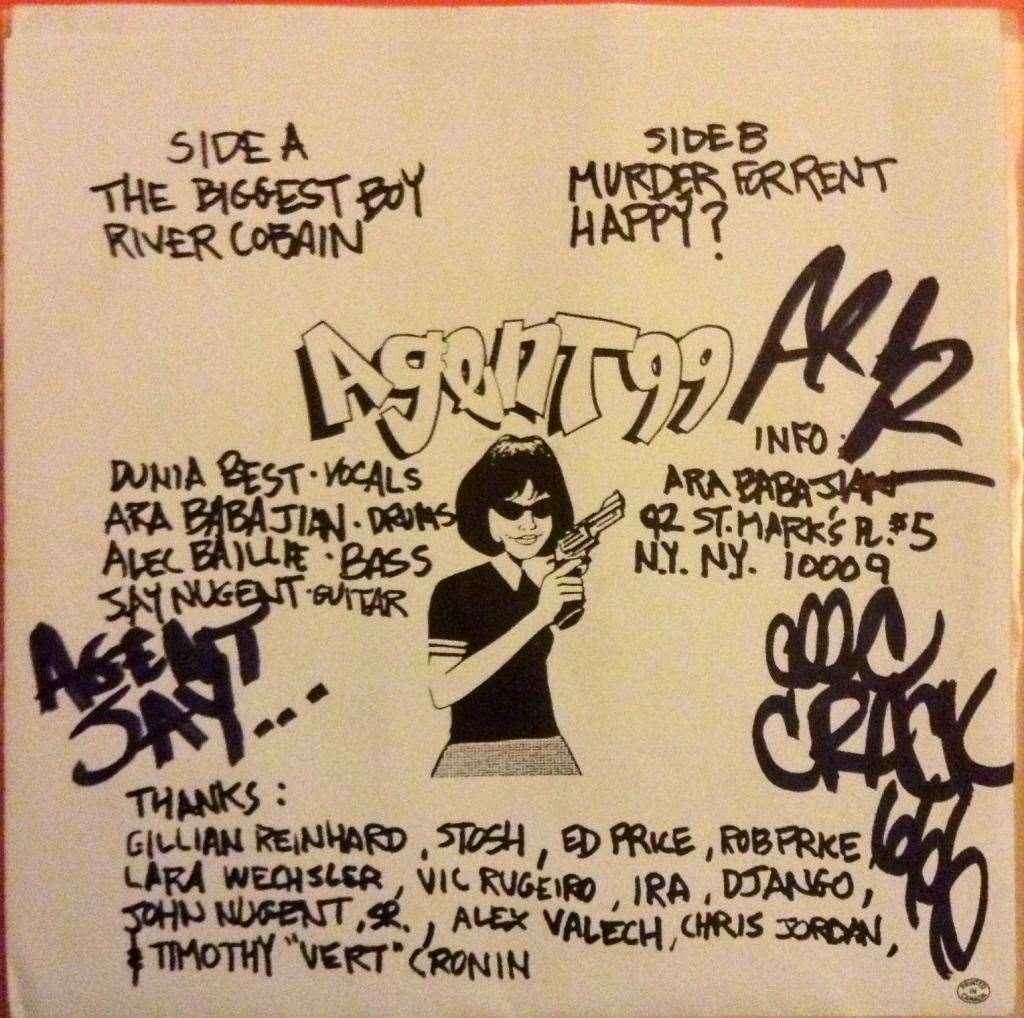 SIDE A
THE BIGGEST BOY
RIVER COBAIN
SIDE B
MURDER FOR RENT
HAPPY?
AgenT 99
DUNIA BEST · VOCALS
ARA BABAJIAN · DRUMS
ALEC BAILLIE · BASS
JAY NUGENT · GUITAR
INFO:
ARA BABAJIAN
92 ST. MARK'S PL. #5
N.Y. N.Y. 10009
AGENT
JAY...
CRACK
THANKS:
GILLIAN REINHARD, STOSH, ED PRICE, ROB PRICE
LARA WECHSLER, VIC RUGEIRO, IRA, DJANGO,
JOHN NUGENT, SR., ALEX VALECH, CHRIS JORDAN,
& TIMOTHY "VERT" CRONIN
PRINTED
IN
CANADA